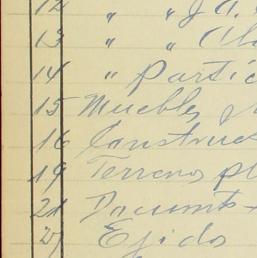 12 " " J. A.
13 " " Ala
14 " Partic
15 Muebles y
16 Construc
19 Terreno pl
21 Documt
27 Ejido